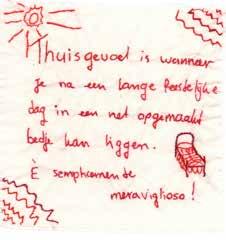 Thuisgevoel is wanneer
je na een lange feestelijke
dag in een net opgemaakt
bedje kan liggen.
È semplicemente
meraviglioso!